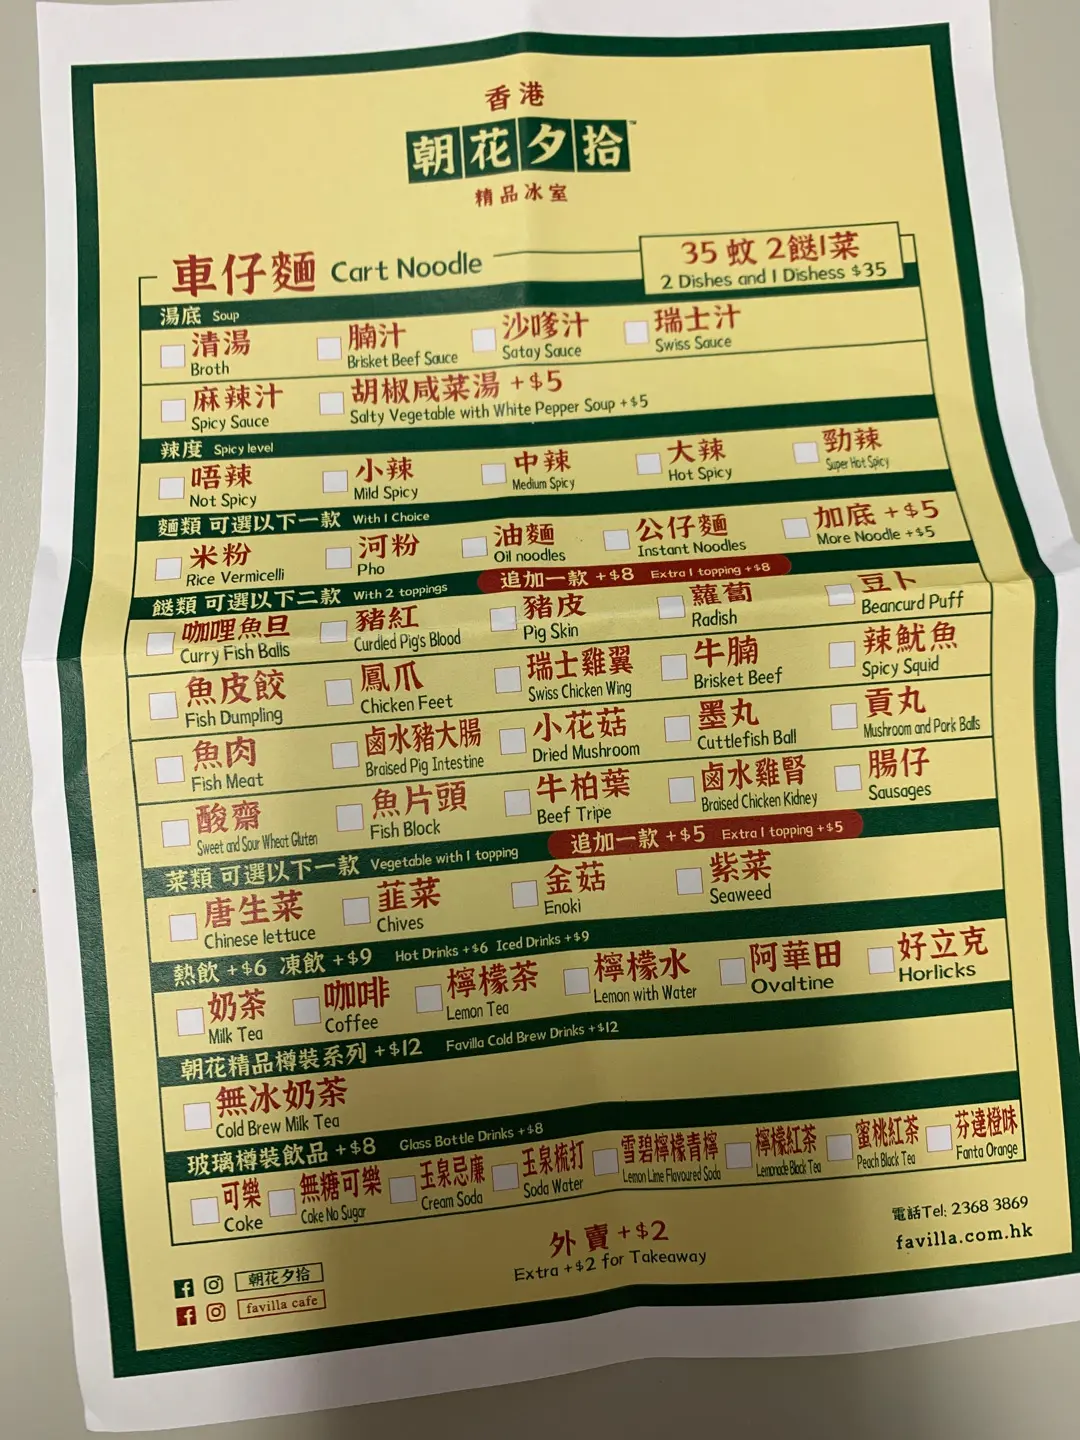 香港
朝花夕拾™
精品冰室
車仔麵 Cart Noodle
35 蚊 2餸1菜
2 Dishes and 1 Dishess $35
湯底 Soup
清湯 腩汁 沙嗲汁 瑞士汁
Broth Brisket Beef Sauce Satay Sauce Swiss Sauce
麻辣汁 胡椒咸菜湯 +$5
Spicy Sauce Salty Vegetable with White Pepper Soup +$5
辣度 Spicy level
唔辣 小辣 中辣 大辣 勁辣
Not Spicy Mild Spicy Medium Spicy Hot Spicy Super Hot Spicy
麵類 可選以下一款 With 1 Choice
米粉 河粉 油麵 公仔麵 加底 +$5
Rice Vermicelli Pho Oil noodles Instant Noodles More Noodle +$5
餸類 可選以下二款 With 2 toppings 追加一款 +$8 Extra 1 topping +$8
咖哩魚旦 豬紅 豬皮 蘿蔔 豆卜
Curry Fish Balls Curdled Pig's Blood Pig Skin Radish Beancurd Puff
魚皮餃 鳳爪 瑞士雞翼 牛腩 辣魷魚
Fish Dumpling Chicken Feet Swiss Chicken Wing Brisket Beef Spicy Squid
魚肉 鹵水豬大腸 小花菇 墨丸 貢丸
Fish Meat Braised Pig Intestine Dried Mushroom Cuttlefish Ball Mushroom and Pork Balls
酸齋 魚片頭 牛柏葉 鹵水雞腎 腸仔
Sweet and Sour Wheat Gluten Fish Block Beef Tripe Braised Chicken Kidney Sausages
菜類 可選以下一款 Vegetable with 1 topping 追加一款 +$5 Extra 1 topping +$5
唐生菜 韮菜 金菇 紫菜
Chinese lettuce Chives Enoki Seaweed
熱飲 +$6 凍飲 +$9 Hot Drinks +$6 Iced Drinks +$9
奶茶 咖啡 檸檬茶 檸檬水 阿華田 好立克
Milk Tea Coffee Lemon Tea Lemon with Water Ovaltine Horlicks
朝花精品樽裝系列 +$12 Favilla Cold Brew Drinks +$12
無冰奶茶
Cold Brew Milk Tea
玻璃樽裝飲品 +$8 Glass Bottle Drinks +$8
可樂 無糖可樂 玉泉忌廉 玉泉梳打 雪碧檸檬青檸 檸檬紅茶 蜜桃紅茶 芬達橙味
Coke Coke No Sugar Cream Soda Soda Water Lemon Lime Flavoured Soda Lemonade Black Tea Peach Black Tea Fanta Orange
外賣 +$2
Extra +$2 for Takeaway
電話Tel: 2368 3869
favilla.com.hk
朝花夕拾
favilla cafe